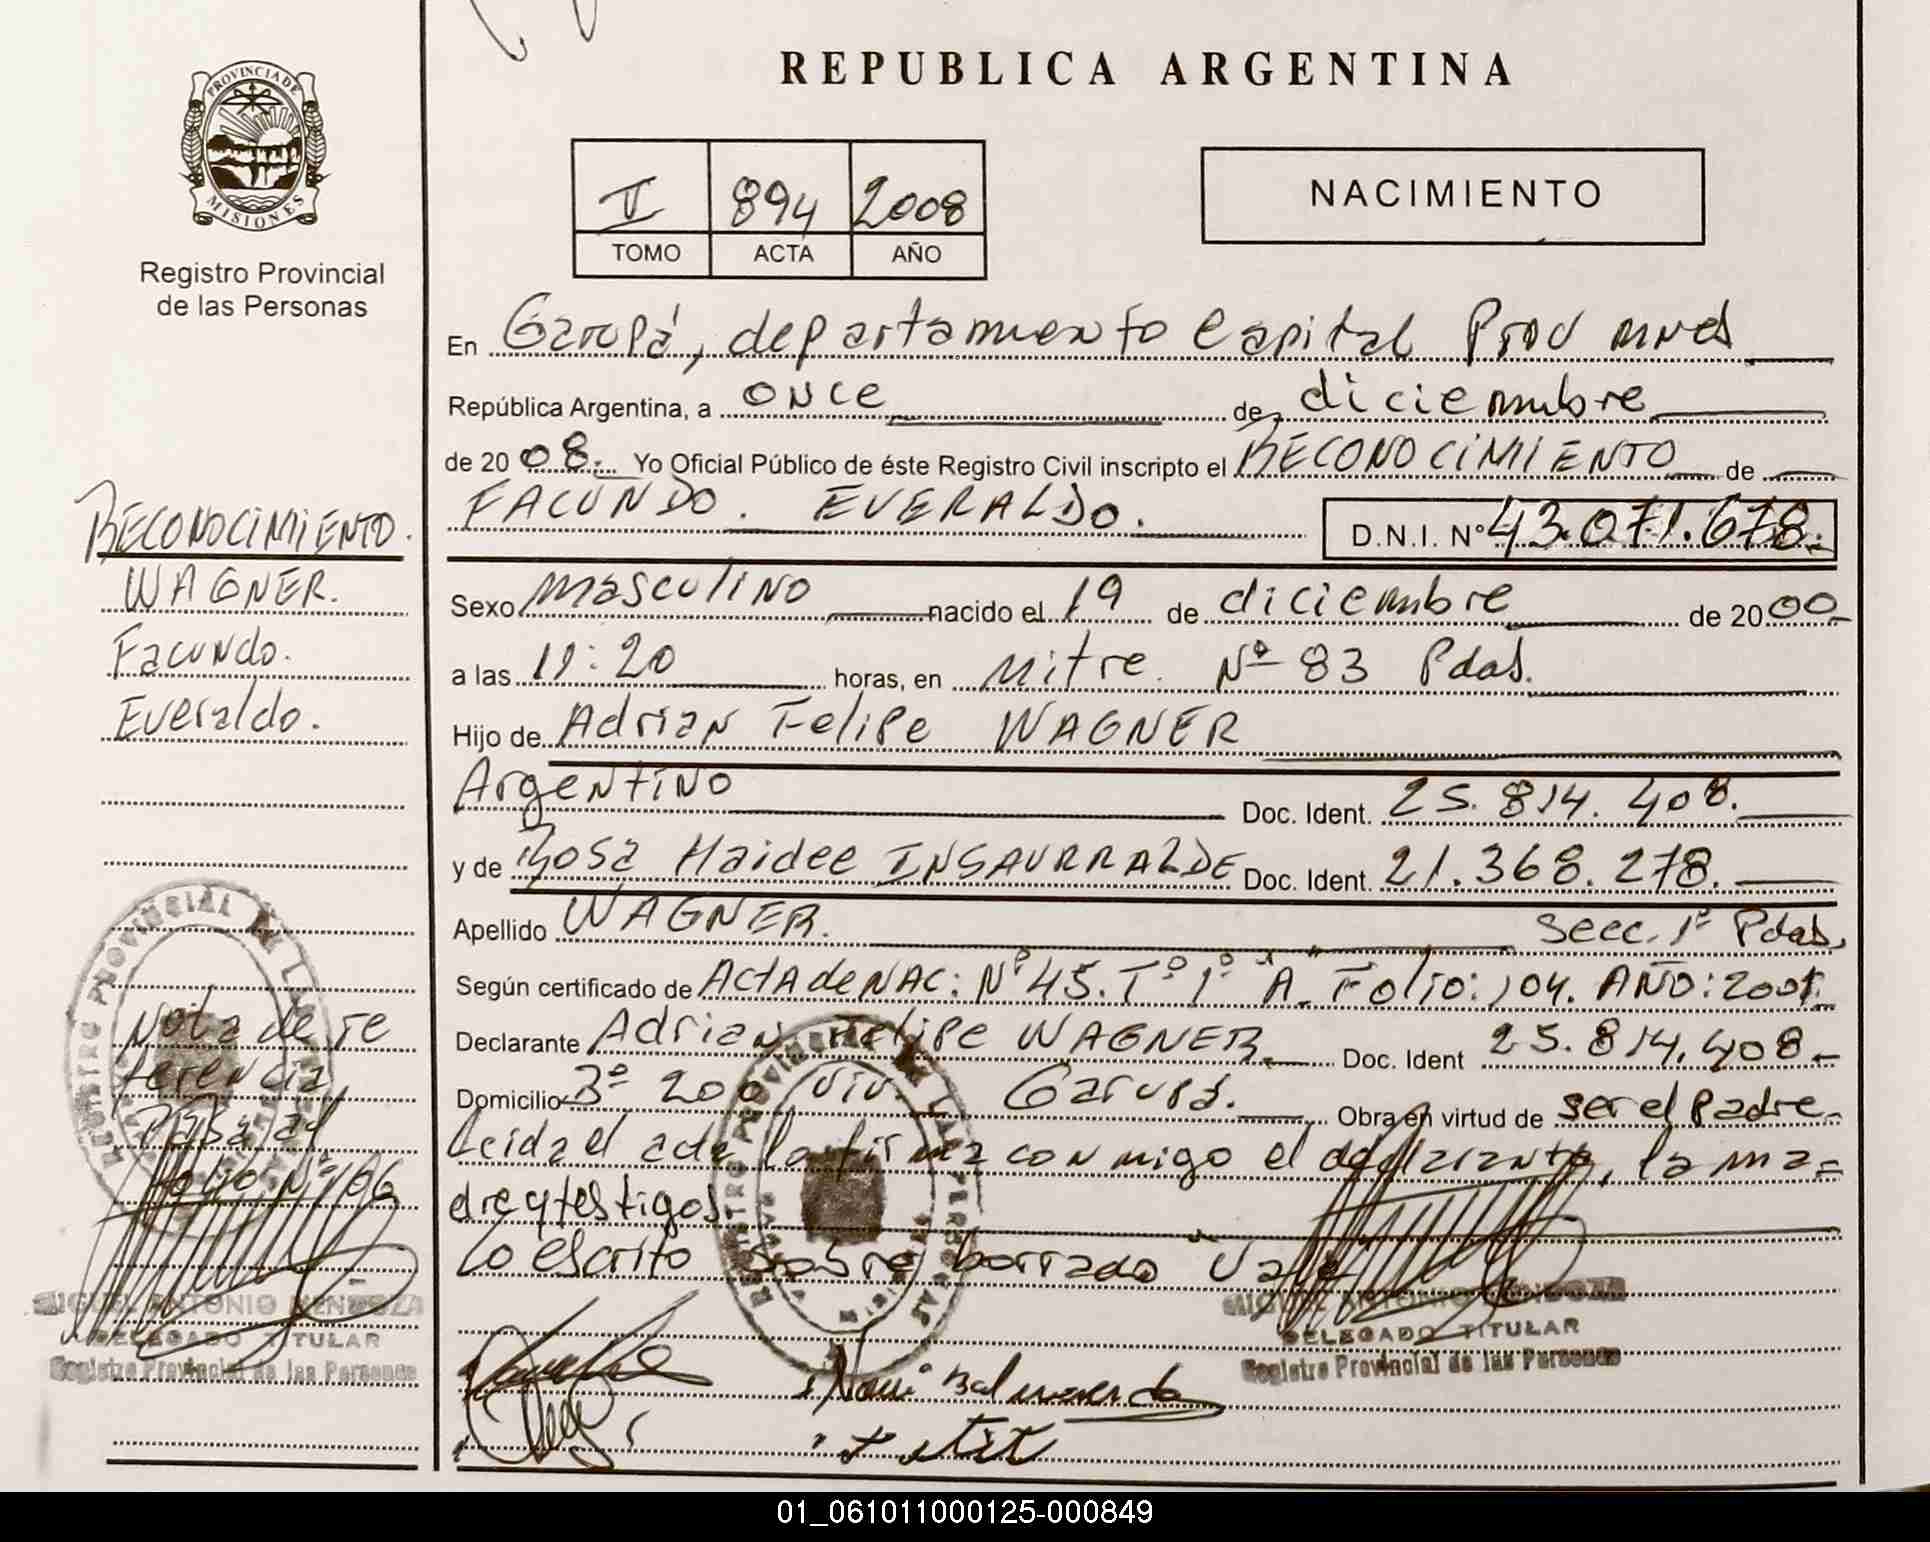 REPUBLICA ARGENTINA
PROVINCIA DE
MISIONES
Registro Provincial
de las Personas
II 894 2008
TOMO ACTA AÑO
NACIMIENTO
En Garupá, departamento Capital Prov mnes
República Argentina, a once de diciembre
de 2008.- Yo Oficial Público de éste Registro Civil inscripto el RECONOCIMIENTO de
FACUNDO. EVERALDO. D.N.I. Nº 43.071.678.-
Sexo masculino nacido el 19 de diciembre de 2000-
a las 11:20 horas, en Mitre. Nº 83 Pdas.
Hijo de Adrian Felipe WAGNER
Argentino Doc. Ident. 25.814.408.
y de Rosa Haidee INSAURRALDE Doc. Ident. 21.368.278.
Apellido WAGNER. Secc. 1ª Pdas,
Según certificado de Acta de NAC: Nº 45. Tº 1º "A. Folio: 104. AÑO: 2001.
Declarante Adrian Felipe WAGNER. Doc. Ident 25.814.408.-
Domicilio Bº 200 viv. Garupá. Obra en virtud de ser el Padre.-
Leida el acta la firma conmigo el declarante, la ma=
dre y testigos
Lo escrito sobre borrado Vale
RECONOCIMIENTO.
WAGNER.
Facundo.
Everaldo.
Nota de re
ferencia
Pasa al
Folio Nº 106
MIGUEL ANTONIO MENDOZA
DELEGADO TITULAR
Registro Provincial de las Personas
MIGUEL ANTONIO MENDOZA
DELEGADO TITULAR
Registro Provincial de las Personas
REGISTRO PROVINCIAL DE LAS PERSONAS
01_061011000125-000849